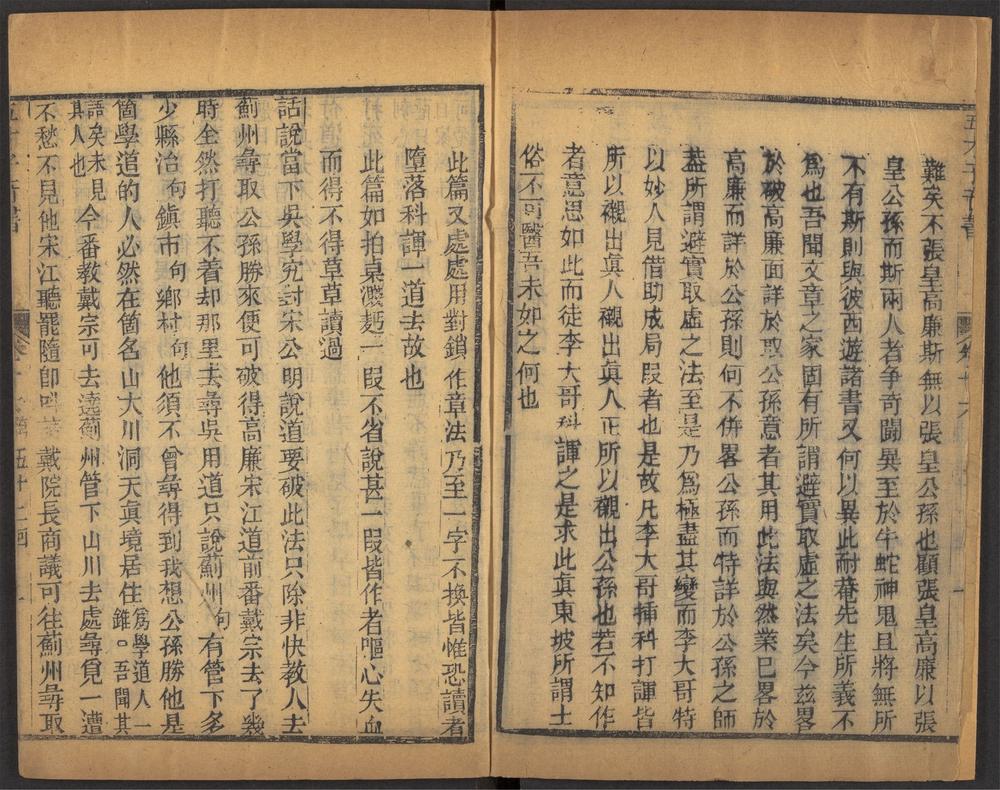 難矣不張皇高廉斯無以張皇公孫也顧張皇高廉以張
皇公孫而斯兩人者爭奇鬬異至於牛蛇神鬼且將無所
不有斯則與彼西遊諸書又何以異此耐菴先生所義不
爲也吾聞文章之家固有所謂避實取虛之法矣今茲畧
於破高廉而詳於取公孫意者其用此法與然業已畧於
高廉而詳於公孫則何不併畧公孫而特詳於公孫之師
蓋所謂避實取虛之法至是乃爲極盡其變而李大哥特
以妙人見借助成局段者也是故凡李大哥插科打諢皆
所以襯出眞人襯出眞人正所以襯出公孫也若不知作
者意思如此而徒李大哥科諢之是求此眞東坡所謂士
俗不可醫吾未如之何也
此篇又處處用對鎖作章法乃至一字不換皆惟恐讀者
墮落科諢一道去故也
此篇如拍桌濺麪一段不省說甚一段皆作者嘔心失血
而得不得草草讀過
話說當下吳學究對宋公明說道要破此法只除非快教人去
薊州尋取公孫勝來便可破得高廉宋江道前番戴宗去了幾
時全然打聽不着却那里去尋吳用道只說薊州句有管下多
少縣治句鎮市句鄉村句他須不曾尋得到我想公孫勝他是
箇學道的人必然在箇名山大川洞天眞境居住爲學道人一
錐。吾聞其
語矣未見
其人也今番教戴宗可去遶薊州管下山川去處尋覓一遭
不愁不見他宋江聽罷隨卽叫請戴院長商議可往薊州尋取
五十二回
一